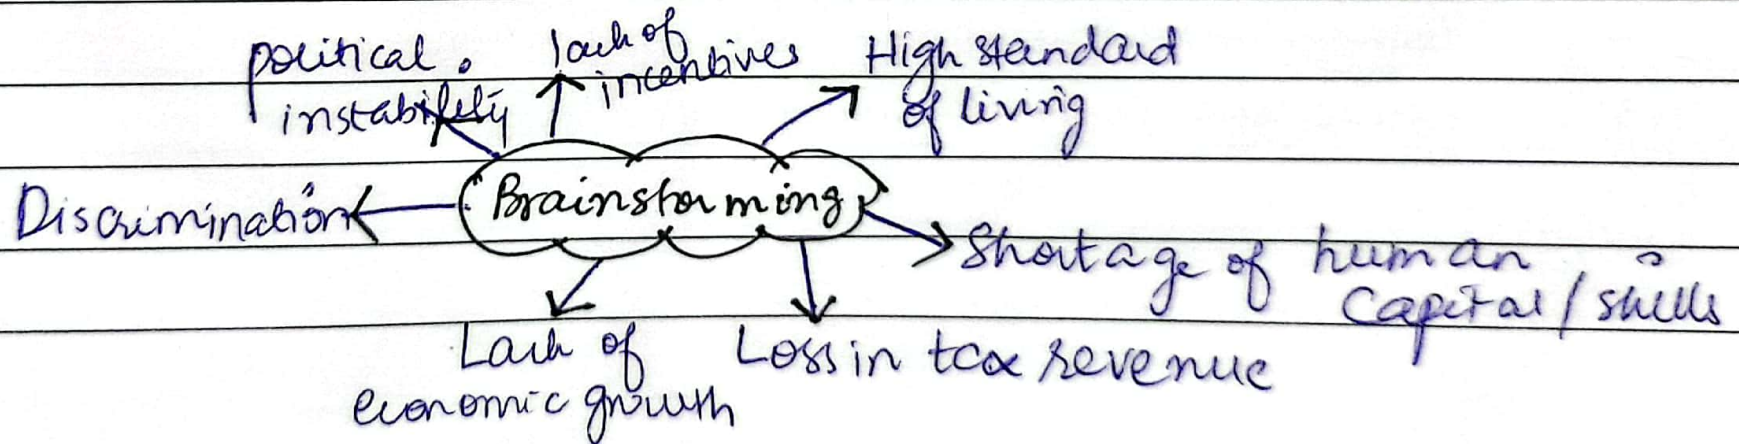 political
instability
lack of
incentives
High standard
of living
Discrimination
Brainstorming
Shortage of human
Capital / skills
Lack of
economic growth
Loss in tax revenue